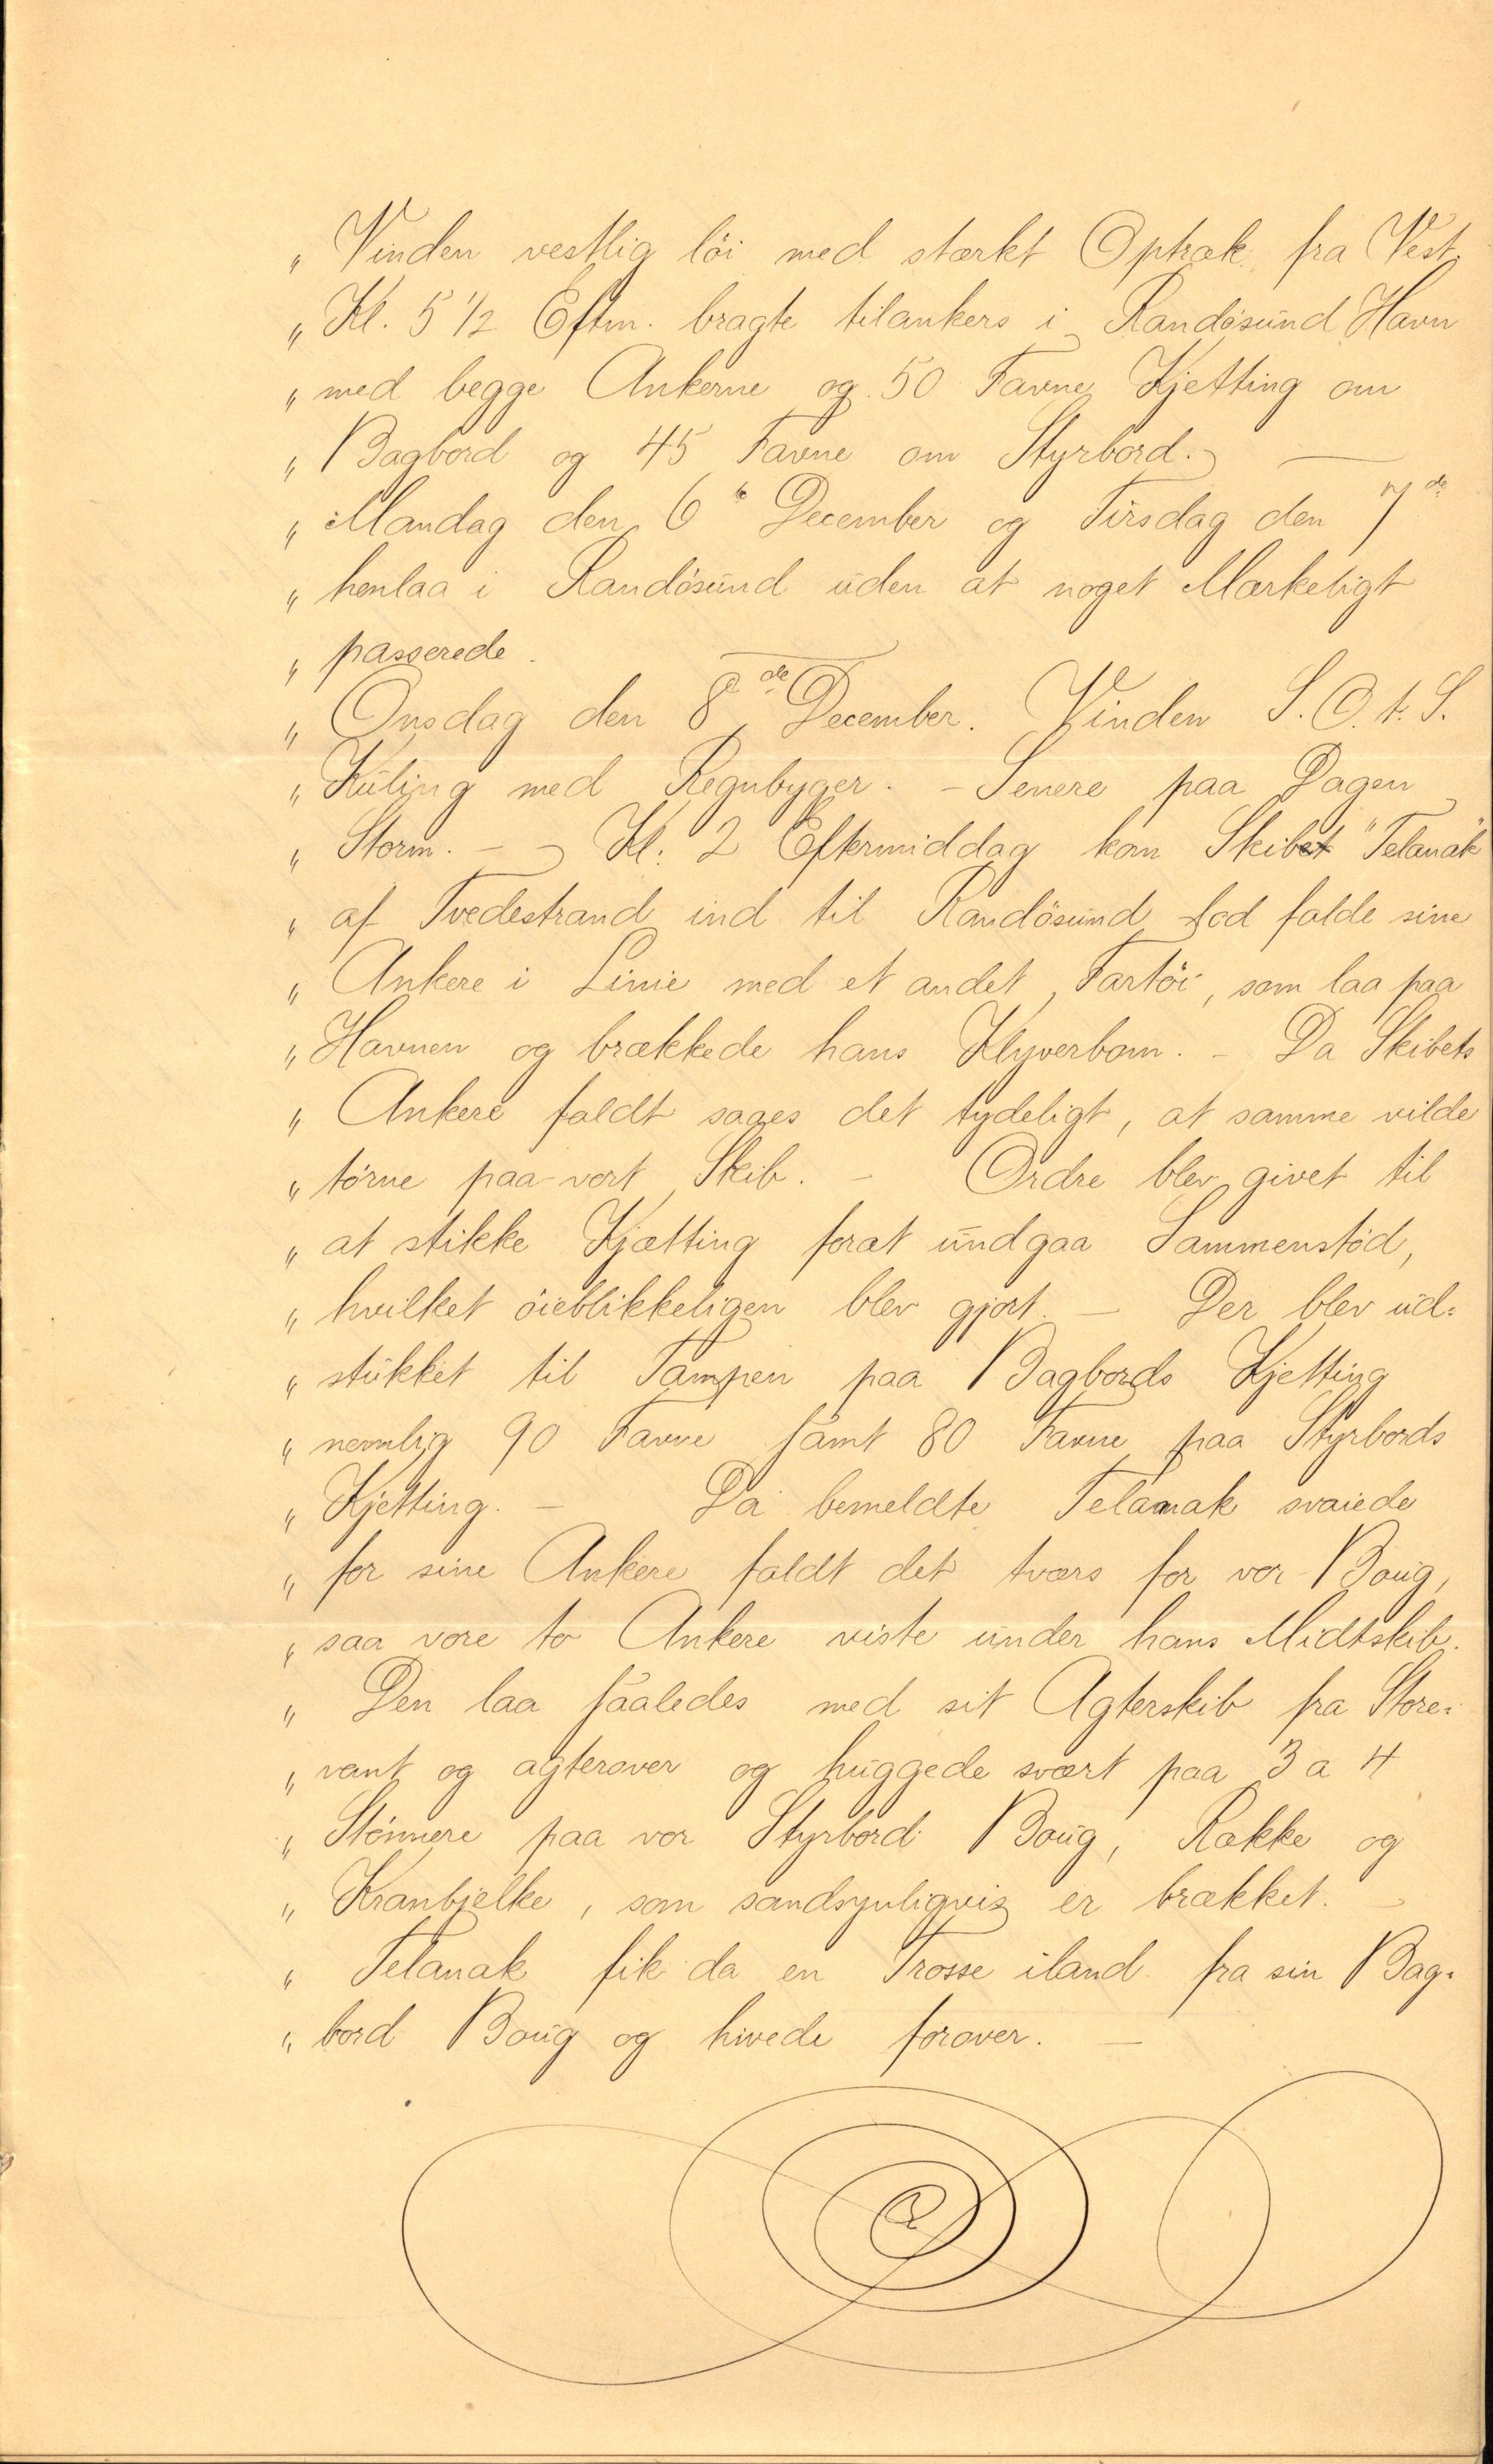 „ Vinden vestlig löi med stærkt Optræk fra Vest.
„ Kl. 5 1/2 Eftm. bragte tilankers i Randösund Havn
„ med begge Ankerne og 50 Favne Kjetting om
„ Bagbord og 45 Favne om Styrbord. —
„ Mandag den 6te December og Tirsdag den 7de
„ henlaa i Randösund uden at noget Mærkeligt
„ passerede.
„ Onsdag den 8de December. Vinden S.O.t.S.
„ Kuling med Regnbyger. – Senere paa Dagen
„ Storm. – – Kl. 2 Eftermiddag kom Skibet "Telanak"
„ af Tvedestrand ind til Randösund lod falde sine
„ Ankere i Linie med et andet Fartöi, som laa paa
„ Havnen og brækkede hans Klyverbom. – Da Skibets
„ Ankere faldt saaes det tydeligt, at samme vilde
„ törne paa vort Skib. – Ordre blev givet til
„ at stikke Kjætting forat undgaa Sammenstöd,
„ hvilket öieblikkeligen blev gjort. – Der blev ud-
„ stukket til Tampen paa Bagbords Kjetting
„ nemlig 90 Favne samt 80 Favne paa Styrbords
„ Kjetting. – Da bemeldte Telanak svaiede
„ for sine Ankere faldt det tværs for vor Boug,
„ saa vore to Ankere viste under hans Midtskib.
„ Den laa saaledes med sit Agterskib fra Store-
„ vant og agterover og huggede svært paa 3 a 4
„ Stönnere paa vor Styrbord Boug, Række og
„ Kranbjelke, som sandsynligvis er brækket. –
„ Telanak fik da en Trosse iland fra sin Bag-
„ bord Boug og hivede forover. —